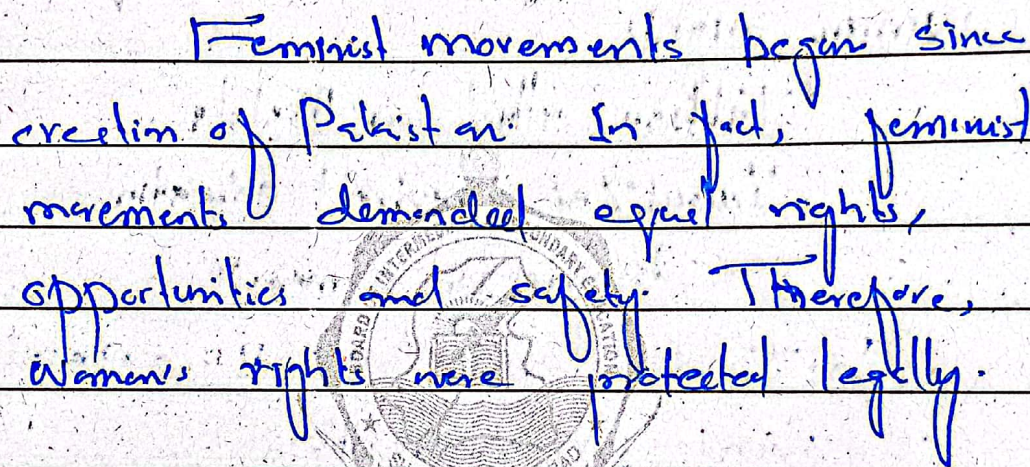 Feminist movements began since
creation of Pakistan. In fact, feminist
movements demanded equal rights,
opportunities and safety. Therefore,
Women's rights were protected legally.
BOARD INTERMEDIATE SECONDARY EDUCATION